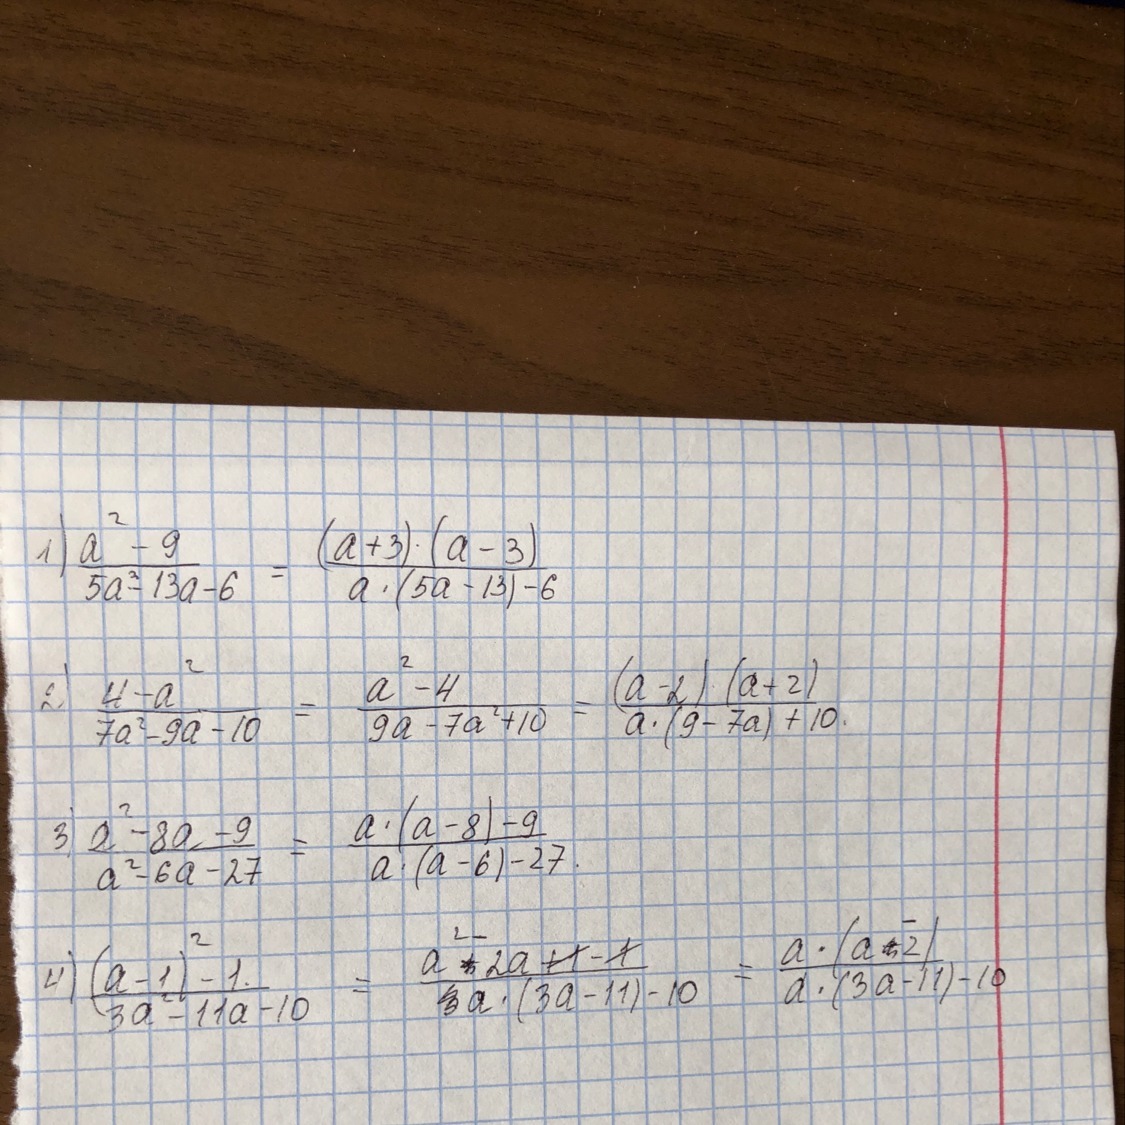 1) (a² - 9)/(5a² - 13a - 6) = ((a + 3) · (a - 3))/(a · (5a - 13) - 6)
2) (4 - a²)/(7a² - 9a - 10) = (a² - 4)/(9a - 7a² + 10) = ((a - 2) · (a + 2))/(a · (9 - 7a) + 10).
3) (a² - 8a - 9)/(a² - 6a - 27) = (a · (a - 8) - 9)/(a · (a - 6) - 27).
4) ((a - 1)² - 1.)/(3a² - 11a - 10) = (a² - 2a + 1 - 1)/(a · (3a - 11) - 10) = (a · (a - 2))/(a · (3a - 11) - 10)